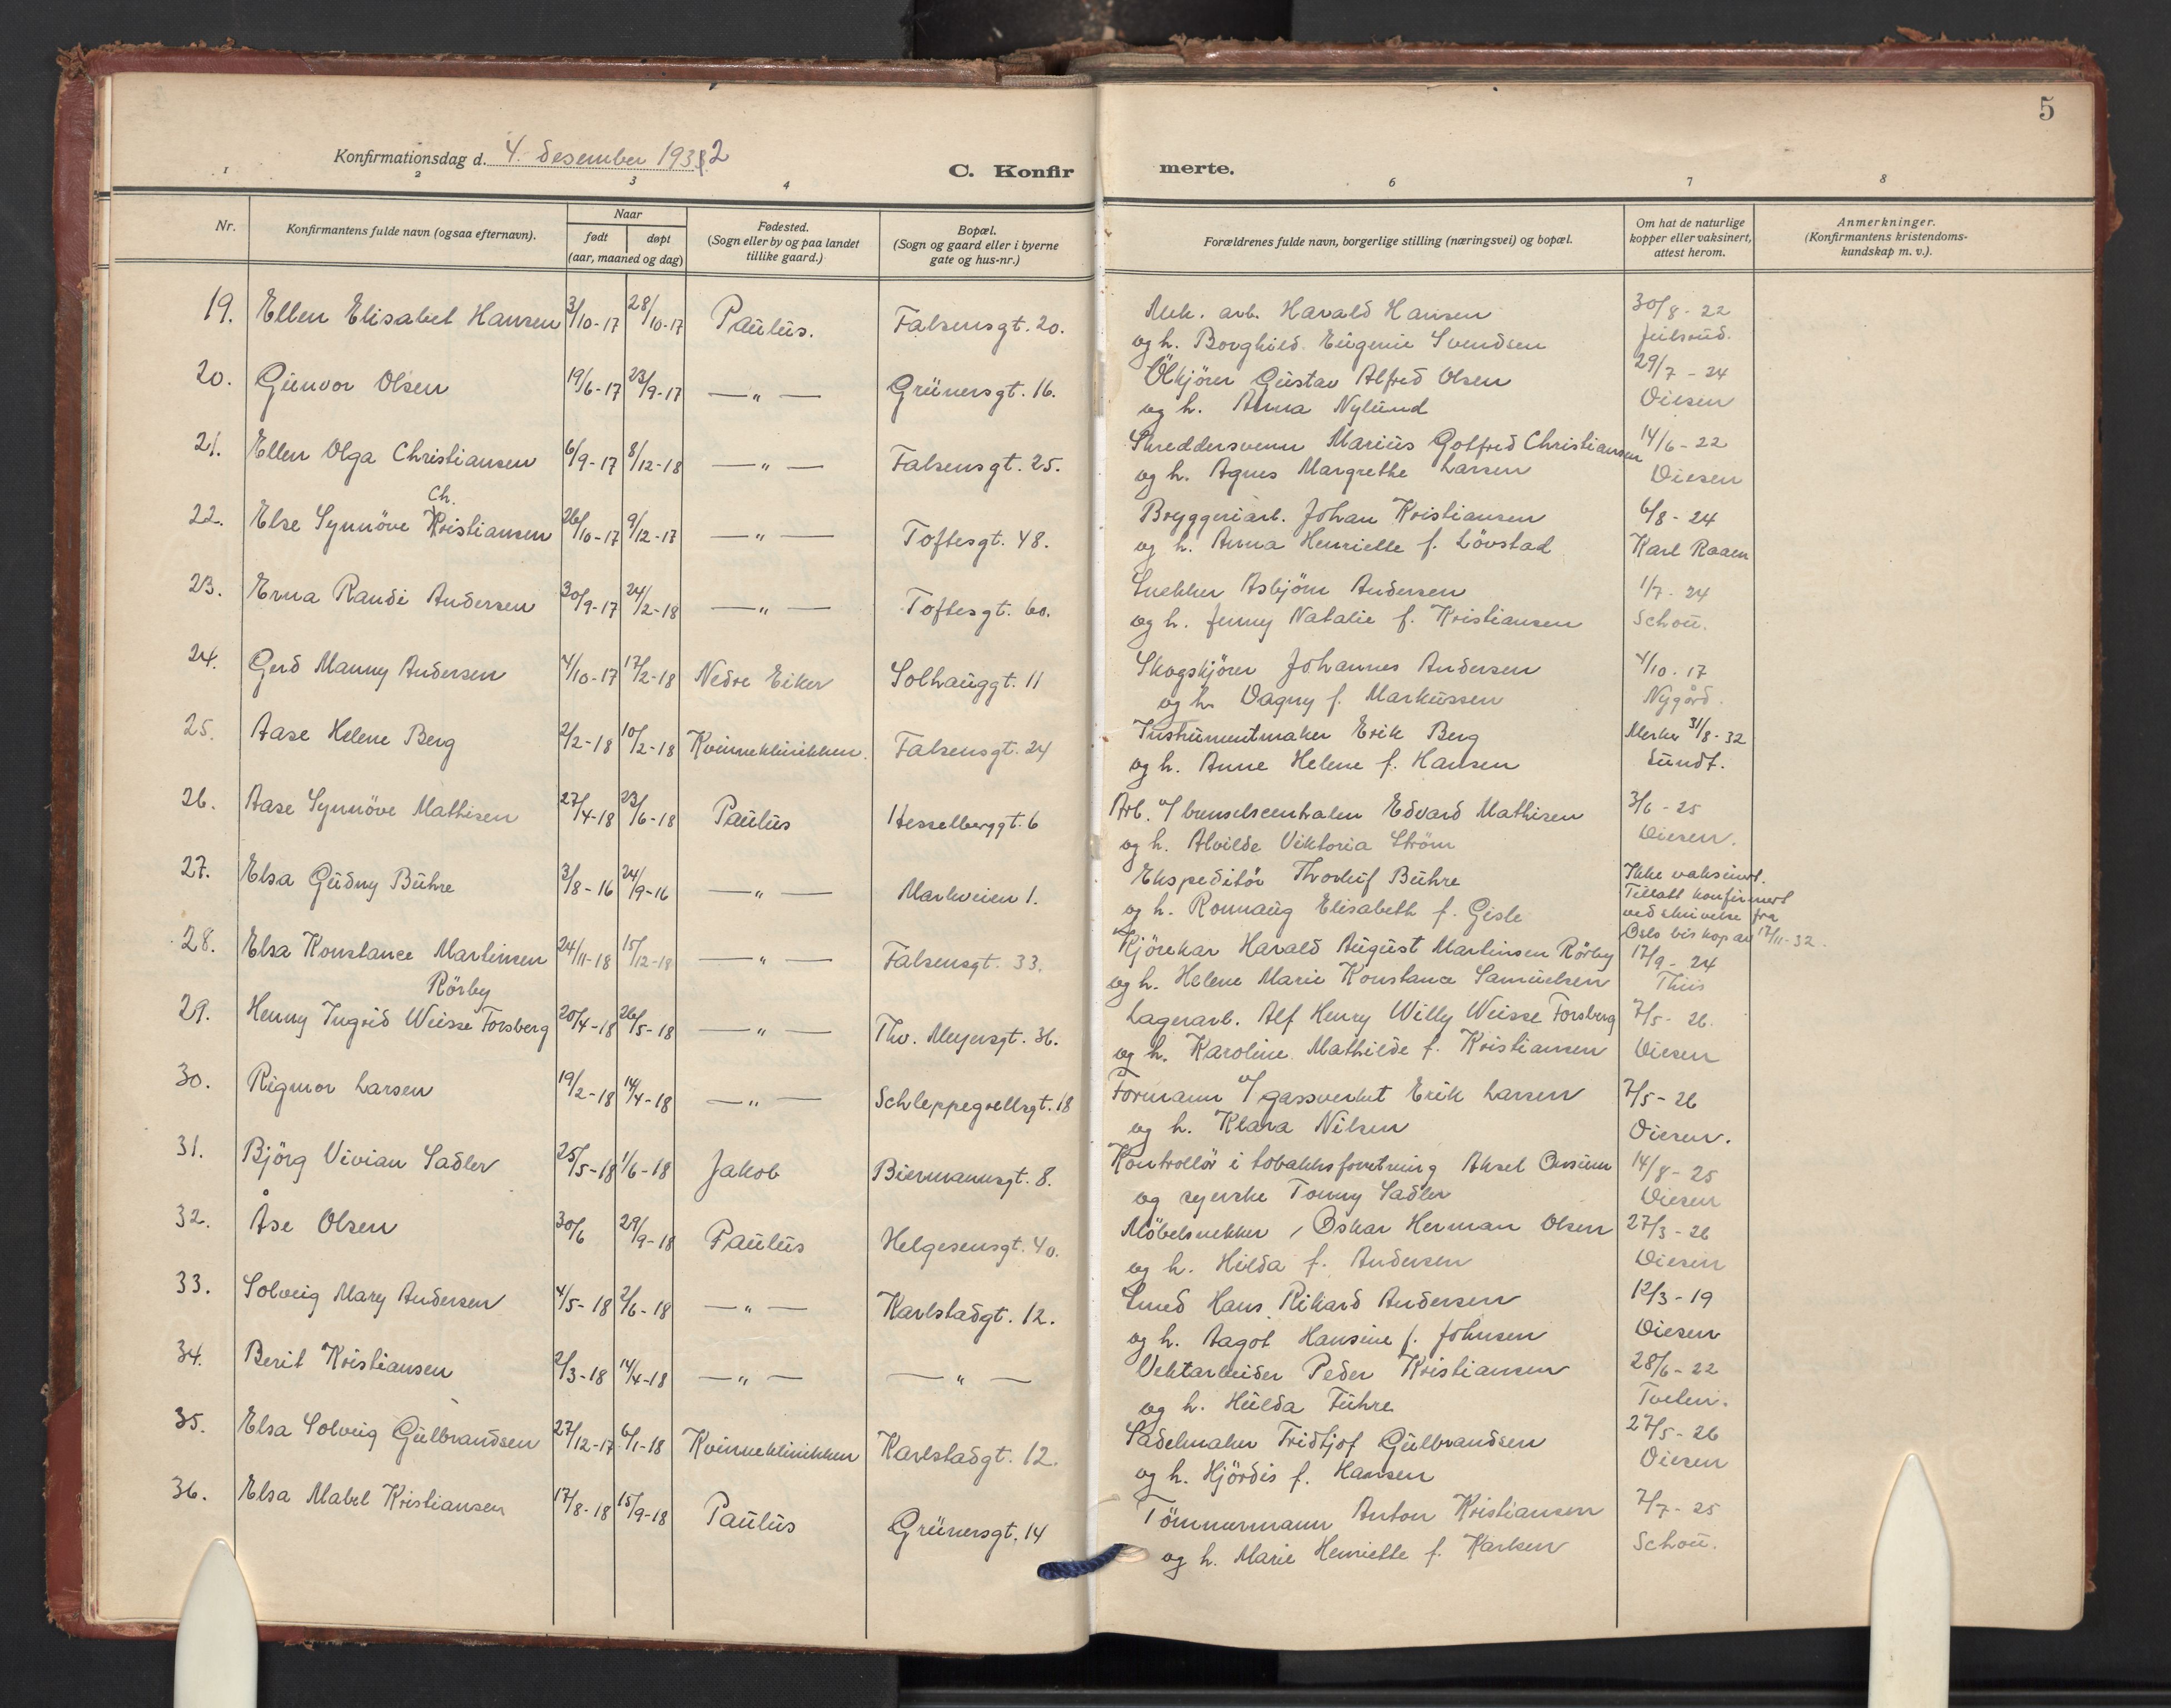 5
Konfirmationsdag d. 4. desember 1932
C. Konfirmerte.
1 2 3 4 6 7 8
Nr.
Konfirmantens fulde navn (ogsaa efternavn).
Naar
født døpt
(aar, maaned og dag)
Fødested.
(Sogn eller by og paa landet
tillike gaard.)
Bopæl.
(Sogn og gaard eller i byerne
gate og hus-nr.)
Forældrenes fulde navn, borgerlige stilling (næringsvei) og bopæl.
Om hat de naturlige
kopper eller vaksinert,
attest herom.
Anmerkninger.
(Konfirmantens kristendoms-
kundskap m. v.).
19. Ellen Elisabet Hansen 3/10-17 28/10-17 Paulus. Falsensgt. 20. Mek. arb. Harald Hansen 30/8-22
og h. Borghild Eugenie Svendsen Juilsrud.
20. Gunvor Olsen 19/6-17 23/9-17 —"— Grünersgt. 16. Ölkjörer Gustav Alfred Olsen 29/7-24
og h. Anna Nylund Diesen
21. Ellen Olga Christiansen 6/9-17 8/12-18 —"— Falsensgt. 25. Skreddersvenn Marius Gotfred Christiansen 14/6-22
og h. Agnes Margrethe Larsen Diesen
Ch.
22. Else Synnöve Kristiansen 26/10-17 9/12-17 —"— Toftesgt. 48. Bryggeriarb. Johan Kristiansen 6/8-24
og h. Anna Henriette f. Lövstad Karl Raaen
23. Erna Randi Andersen 30/9-17 24/2-18 —"— Toftesgt. 60. Snekker Asbjörn Andersen 1/7-24
og h. Jenny Natalie f. Kristiansen Schou.
24. Gerd Manny Andersen 4/10-17 17/2-18 Nedre Eiker Solhauggt. 11 Skogskjörer Johannes Andersen 4/10.17
og h. Dagny f. Markussen Nygård.
25. Aase Helene Berg 2/2-18 10/2-18 Kvinneklinikken. Falsensgt. 24 Instrumentmaker Erik Berg Merke 31/8-32
og h. Anne Helene f. Hansen Sundt.
26. Aase Synnöve Mathisen 27/4-18 23/6-18 Paulus Hesselberggt. 6 Arb. v/ brenselscentralen Edvard Mathisen 3/6-25
og h. Alvilde Viktoria Ström Diesen.
27. Elsa Gudny Buhre 3/8-16 24/9-16 —"— Markveien 1. Ekspeditör Thorleif Buhre Ikke vaksinert.
og h. Ronnaug Elisabeth f. Gisle Tillatt konfirmert
ved skrivelse fra
Oslo biskop av 17/11-32.
28. Elsa Konstance Martinsen 24/11-18 15/12-18 —"— Falsensgt. 33. Kjörekar Harald August Martinsen Rörby 17/9-24
Rörby og h. Helene Marie Konstance Samuelsen Thiis
29. Henny Ingrid Weisse Forsberg 20/4-18 26/5-18 —"— Thv. Meyersgt. 36. Lagerarb. Alf Henry Willy Weisse Forsberg 7/5-26.
og h. Karoline Mathilde f. Kristiansen Diesen
30. Rigmor Larsen 19/2-18 14/4-18 —"— Schleppegrellsgt. 18 Formann v/ gassverket Erik Larsen 7/5-26
og h. Klara Nilsen Diesen.
31. Björg Vivian Sadler 25/5-18 1/6-18 Jakob Biermannsgt. 8. Kontrollör i tobakksforretning Aksel 14/8-25
og syerske Tonny Sadler Diesen
32. Åse Olsen 30/6 29/9-18 Paulus Helgesensgt. 40. Möbelsnekker Oskar Herman Olsen 27/3-26
og h. Hilda f. Andersen Diesen
33. Solveig Mary Andersen 4/5-18 2/6-18 —"— Karlstadgt. 12. Smed Hans Rikard Andersen 12/3-19
og h. Aagot Hansine f. Johnsen Diesen
34. Berit Kristiansen 2/3-18 14/4-18 —"— —"— Vektarbeider Peder Kristiansen 28/6-22
og h. Hulda Fuhre Tvelen.
35. Elsa Solveig Gulbrandsen 27/12-17 6/1-18 Kvinneklinikken Karlstadgt. 12. Sadelmaker Fridtjof Gulbrandsen 27/5-26
og h. Hjördis f. Hansen Diesen
36. Elsa Mabel Kristiansen 17/8-18 15/9-18 Paulus Grünersgt. 14 Tömmermann Anton Kristiansen 7/7-25
og h. Marie Henriette f. Karlsen Schou.